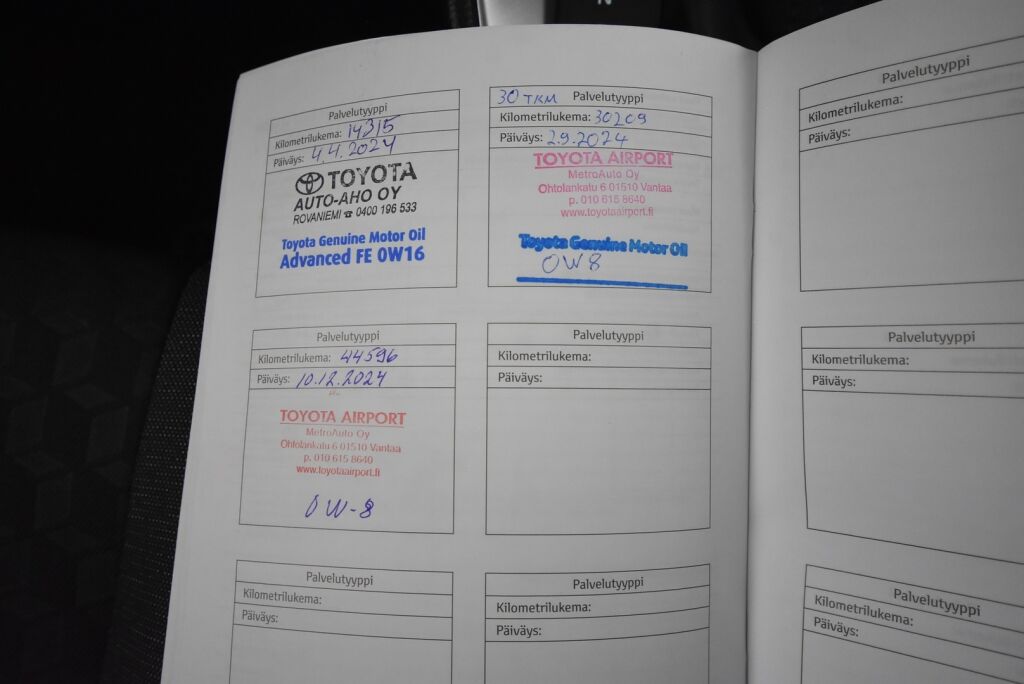 N
Palvelutyyppi
Kilometrilukema: 14315
Päiväys: 4.4.2024
TOYOTA
AUTO-AHO OY
ROVANIEMI ☎ 0400 196 533
Toyota Genuine Motor Oil
Advanced FE 0W16
30 TKM Palvelutyyppi
Kilometrilukema: 30209
Päiväys: 2.9.2024
TOYOTA AIRPORT
MetroAuto Oy
Ohtolankatu 6 01510 Vantaa
p. 010 615 8640
www.toyotaairport.fi
Toyota Genuine Motor Oil
0W8
Palvelutyyppi
Kilometrilukema:
Päiväys:
Palvelutyyppi
Kilometrilukema: 44596
Päiväys: 10.12.2024
TOYOTA AIRPORT
MetroAuto Oy
Ohtolankatu 6 01510 Vantaa
p. 010 615 8640
www.toyotaairport.fi
0W-8
Palvelutyyppi
Kilometrilukema:
Päiväys:
Palvelutyyppi
Kilometrilukema:
Päiväys:
Palvelutyyppi
Kilometrilukema:
Päiväys:
Palvelutyyppi
Kilometrilukema:
Päiväys:
Palvelutyyppi
Kilometrilukema:
Päiväys: